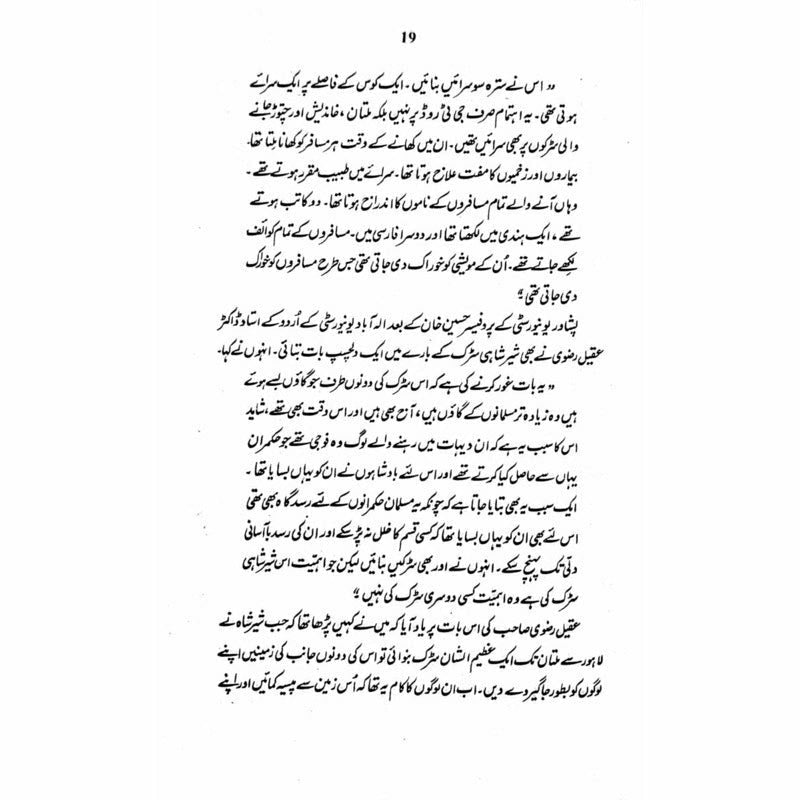 19
” اس نے سترہ سو سرائیں بنائیں ۔ ایک کوس کے فاصلے پر ایک سرائے
ہوتی تھی ۔ یہ اہتمام صرف جی ٹی روڈ پر نہیں بلکہ ملتان ، خاندیش اور چتوڑ جانے
والی سڑکوں پر بھی سرائیں تھیں ۔ ان میں کھانے کے وقت ہر مسافر کو کھانا ملتا تھا۔
بیماروں اور زخمیوں کا مفت علاج ہوتا تھا ۔ سرائے میں طبیب مقرر ہوتے تھے ۔
وہاں آنے والے تمام مسافروں کے ناموں کا اندراج ہوتا تھا۔ دو کاتب ہوتے
تھے ، ایک ہندی میں لکھتا تھا اور دوسرا فارسی میں۔ مسافروں کے تمام کوائف
لکھے جاتے تھے۔ اُن کے مویشی کو خوراک دی جاتی تھی جس طرح مسافروں کو خوراک
دی جاتی تھی ۔“
پشاور یونیورسٹی کے پروفیسر حسین خان کے بعد الہ آباد یونیورسٹی کے اُردو کے استاد ڈاکٹر
عقیل رضوی نے بھی شیر شاہی سڑک کے بارے میں ایک دلچسپ بات بتائی۔ انہوں نے کہا۔
” یہ بات غور کرنے کی ہے کہ اس سڑک کی دونوں طرف جو گاؤں بسے ہوئے
ہیں وہ زیادہ تر مسلمانوں کے گاؤں ہیں، آج بھی ہیں اور اس وقت بھی تھے، شاید
اس کا سبب یہ ہے کہ ان دیہات میں رہنے والے لوگ وہ فوجی تھے جو حکمران
یہاں سے حاصل کیا کرتے تھے اور اس لئے بادشاہوں نے ان کو یہاں بسایا تھا ۔
ایک سبب یہ بھی بتایا جاتا ہے کہ چونکہ یہ مسلمان حکمرانوں کے لئے رسد گاہ بھی تھی
اس لئے بھی ان کو یہاں بسایا تھا کہ کسی قسم کا خلل نہ پڑ سکے اور ان کی رسد بآسانی
دلّی تک پہنچ سکے۔ انہوں نے اور بھی سڑکیں بنائیں لیکن جو اہمیّت اس شیر شاہی
سڑک کی ہے وہ اہمیّت کسی دوسری سڑک کی نہیں ۔“
عقیل رضوی صاحب کی اس بات پر یاد آیا کہ میں نے کہیں پڑھا تھا کہ جب شیر شاہ نے
لاہور سے ملتان تک ایک عظیم الشان سڑک بنوائی تو اس کی دونوں جانب کی زمینیں اپنے
لوگوں کو بطور جاگیر دے دیں۔ اب ان لوگوں کا کام یہ تھا کہ اُس زمین سے پیسہ کمائیں اور اپنے